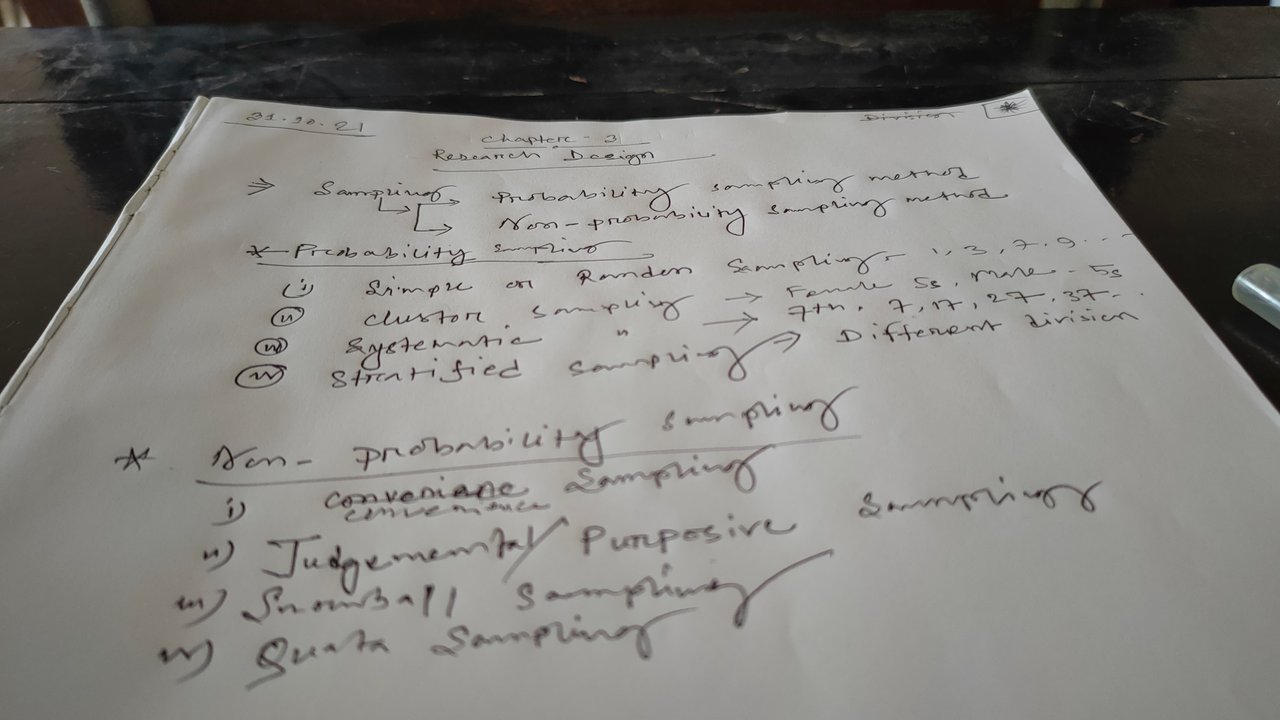 31.10.21
Division
*
Chapter - 3
Research Design
⇒ Sampling → Probability sampling method
→ Non-probability sampling method
* Probability Sampling
(i) Simple or Randon Sampling - 1, 3, 7, 9...
(ii) Clustor Sampling → Female 5s, Male - 5s
(iii) Systematic " → 7th, 7, 17, 27, 37..
(iv) Stratified Sampling → Different division
* Non-probability Sampling
i) Sampling
convenience
ii) Judgemental/Purposive Sampling
iii) Snowball Sampling
iv) Quata Sampling